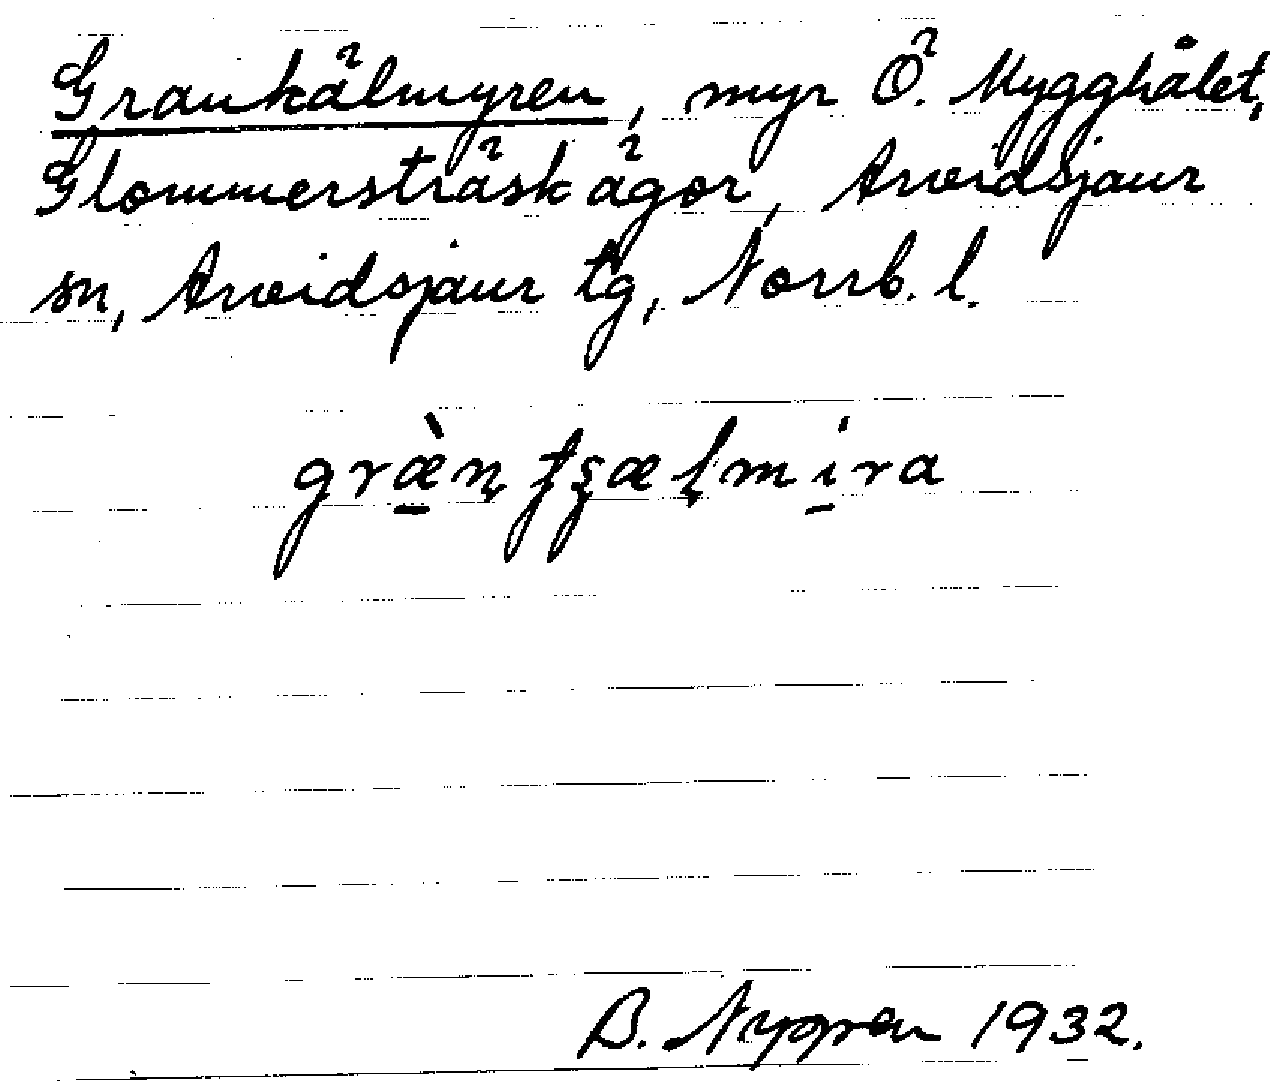 Grankälmyren, myr Ö. Mygghålet,
Glommersträsk ägor, Arvidsjaur
sn, Arvidsjaur tg, Norrb. l.
B. Nygren 1932.